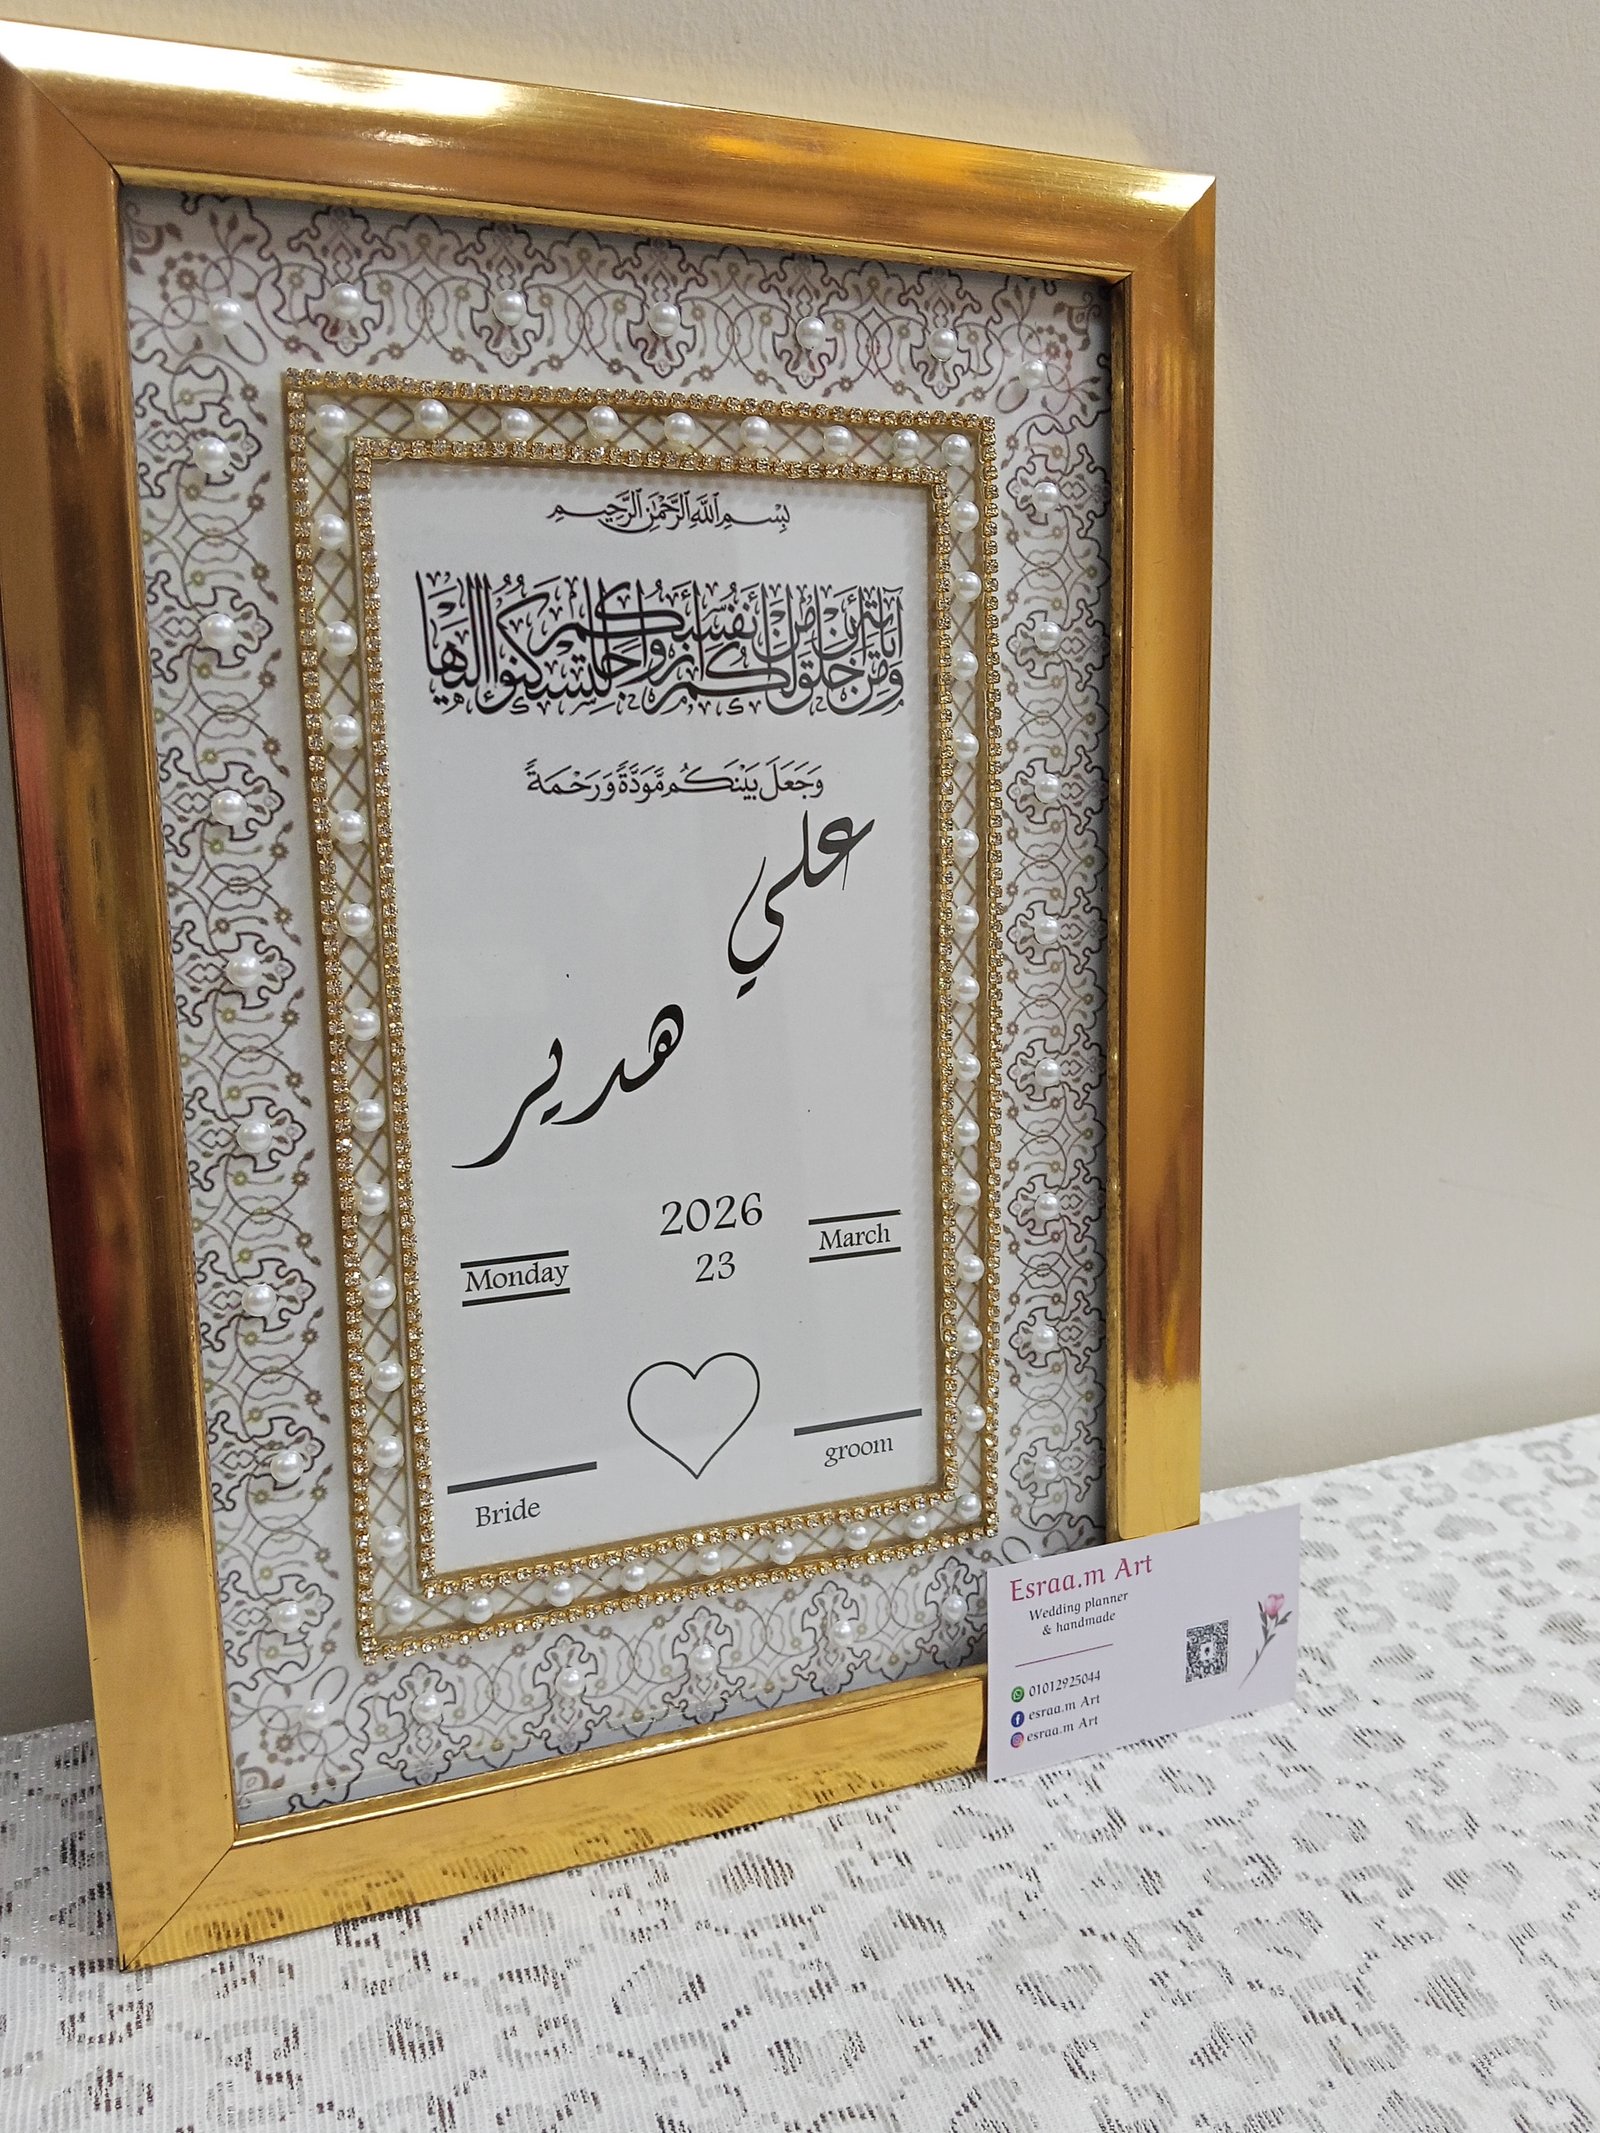 بِسْمِ اللَّهِ الرَّحْمَٰنِ الرَّحِيمِ
وَمِنْ آيَاتِهِ أَنْ خَلَقَ لَكُم مِّنْ أَنفُسِكُمْ أَزْوَاجًا لِّتَسْكُنُوا إِلَيْهَا
وَجَعَلَ بَيْنَكُم مَّوَدَّةً وَرَحْمَةً
علي
هدير
2026
Monday 23 March
Bride groom
Esraa.m Art
Wedding planner
& handmade
01012925044
esraa.m Art
esraa.m Art